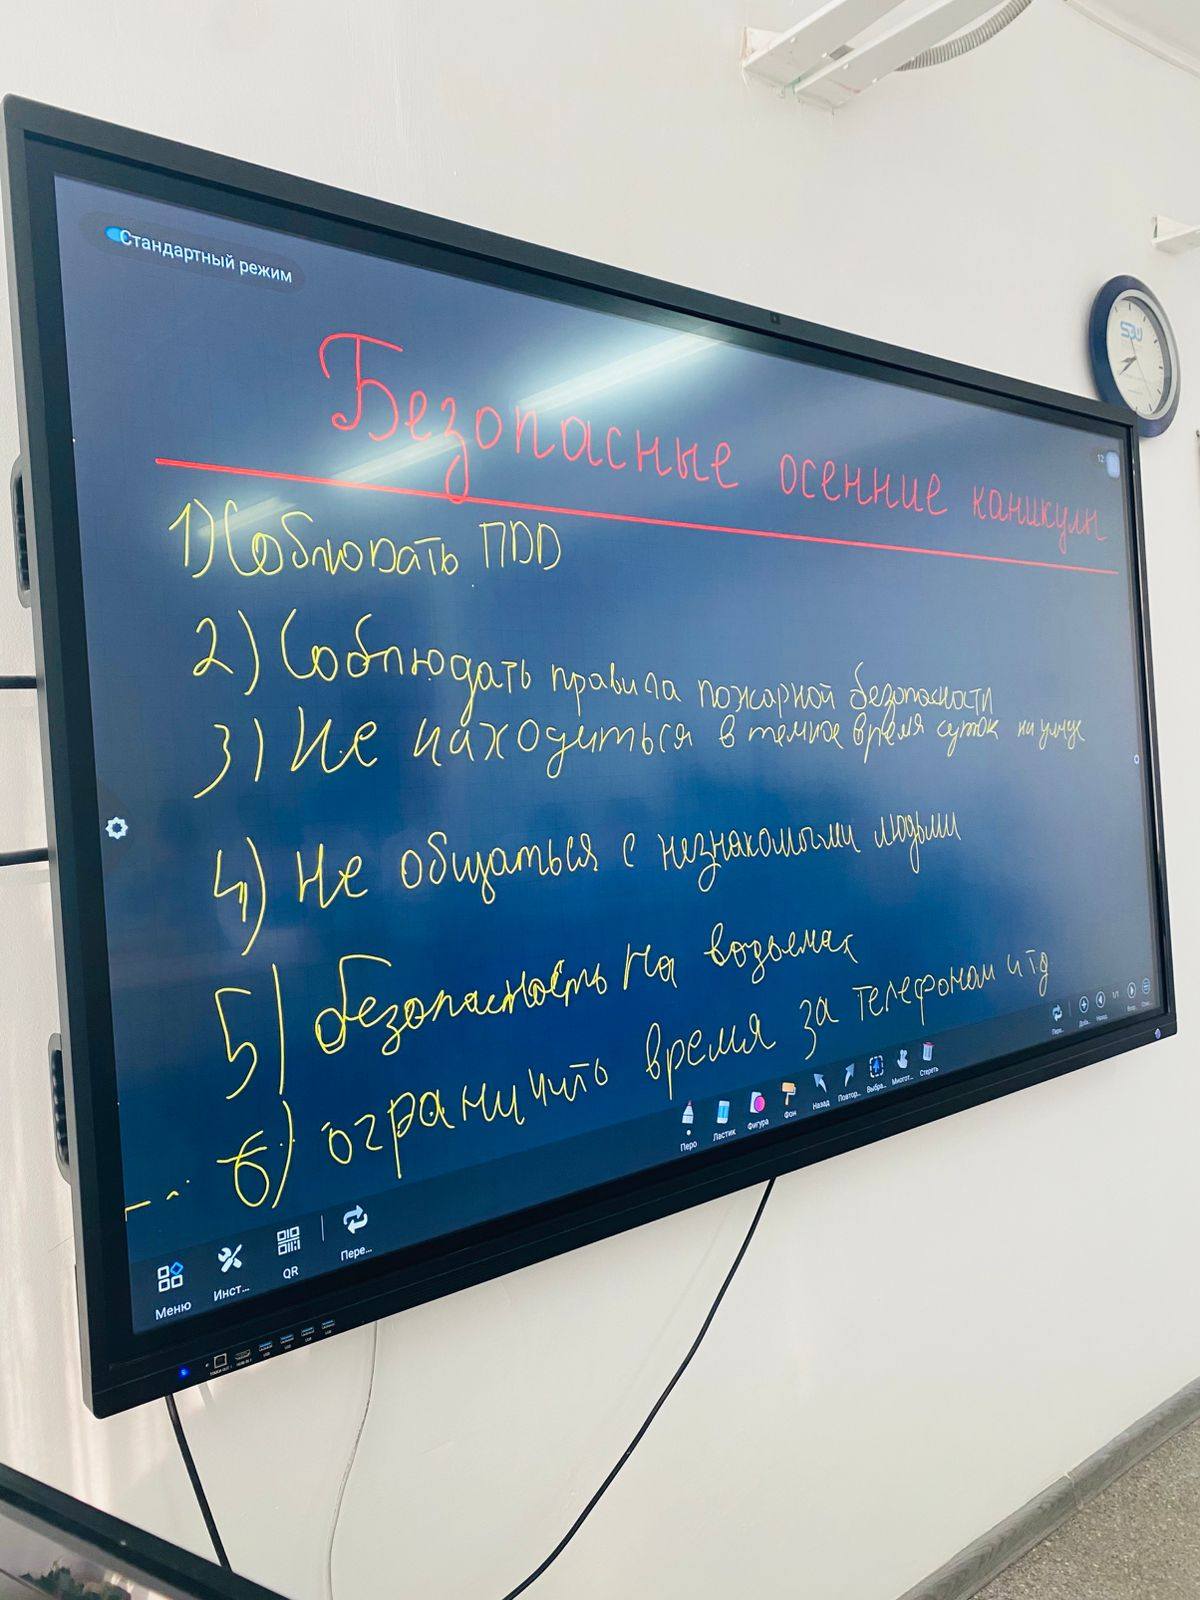 Стандартный режим
Безопасные осенние каникулы
1) Соблювать ПДД
2) Соблюдать правила пожарной безопасности
3) Не находиться в темное время суток на улице
4) Не общаться с незнакомыми людьми
5) безопасность на водоемах
6) ограничить время за телефоном и тд
Перо Ластик Фигура Фон Назад Повтор... Выбра... Многот... Стереть Пере... Доба... Назад 1/1
Меню Инст... QR Пере...